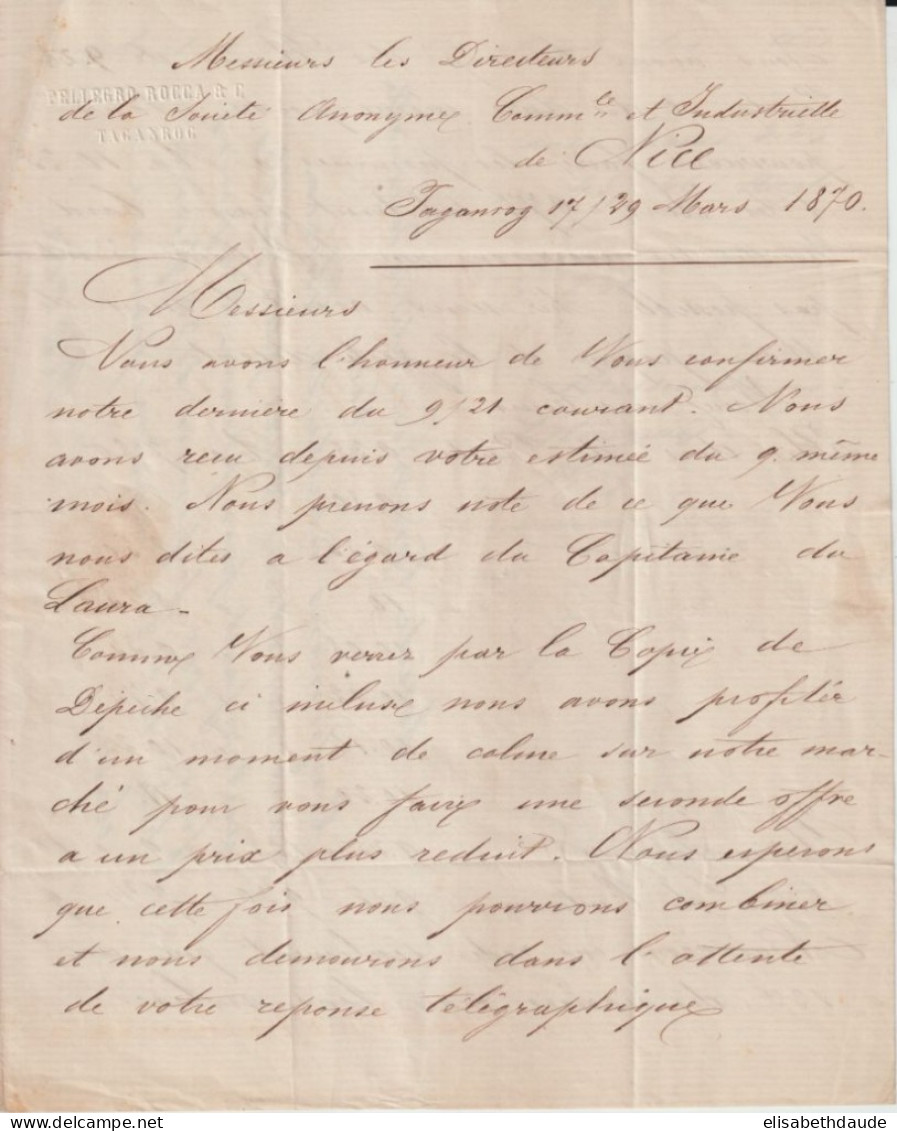 Messieurs les Directeurs
PELLEGRO ROCCA & C.
TAGANROG
de la Société Anonyme Comm^le et Industrielle
de Nice
Taganrog 17/29 Mars 1870.
Messieurs
Nous avons l'honneur de Vous confirmer
notre dernière du 9/21 courant. Nous
avons recu depuis votre estimée du 9. même
mois. Nous prenons note de ce que Vous
nous dites a l'égard du Capitaine du
Laura -
Comme Vous verrez par la Copie de
Dépêche ci incluse nous avons profitér
d'un moment de calme sur notre mar-
ché pour vous faire une seconde offre
a un prix plus reduit. Nous esperons
que cette fois nous pourrions combiner
et nous demourons dans l'attente
de votre reponse télégraphique
elisabethdaude